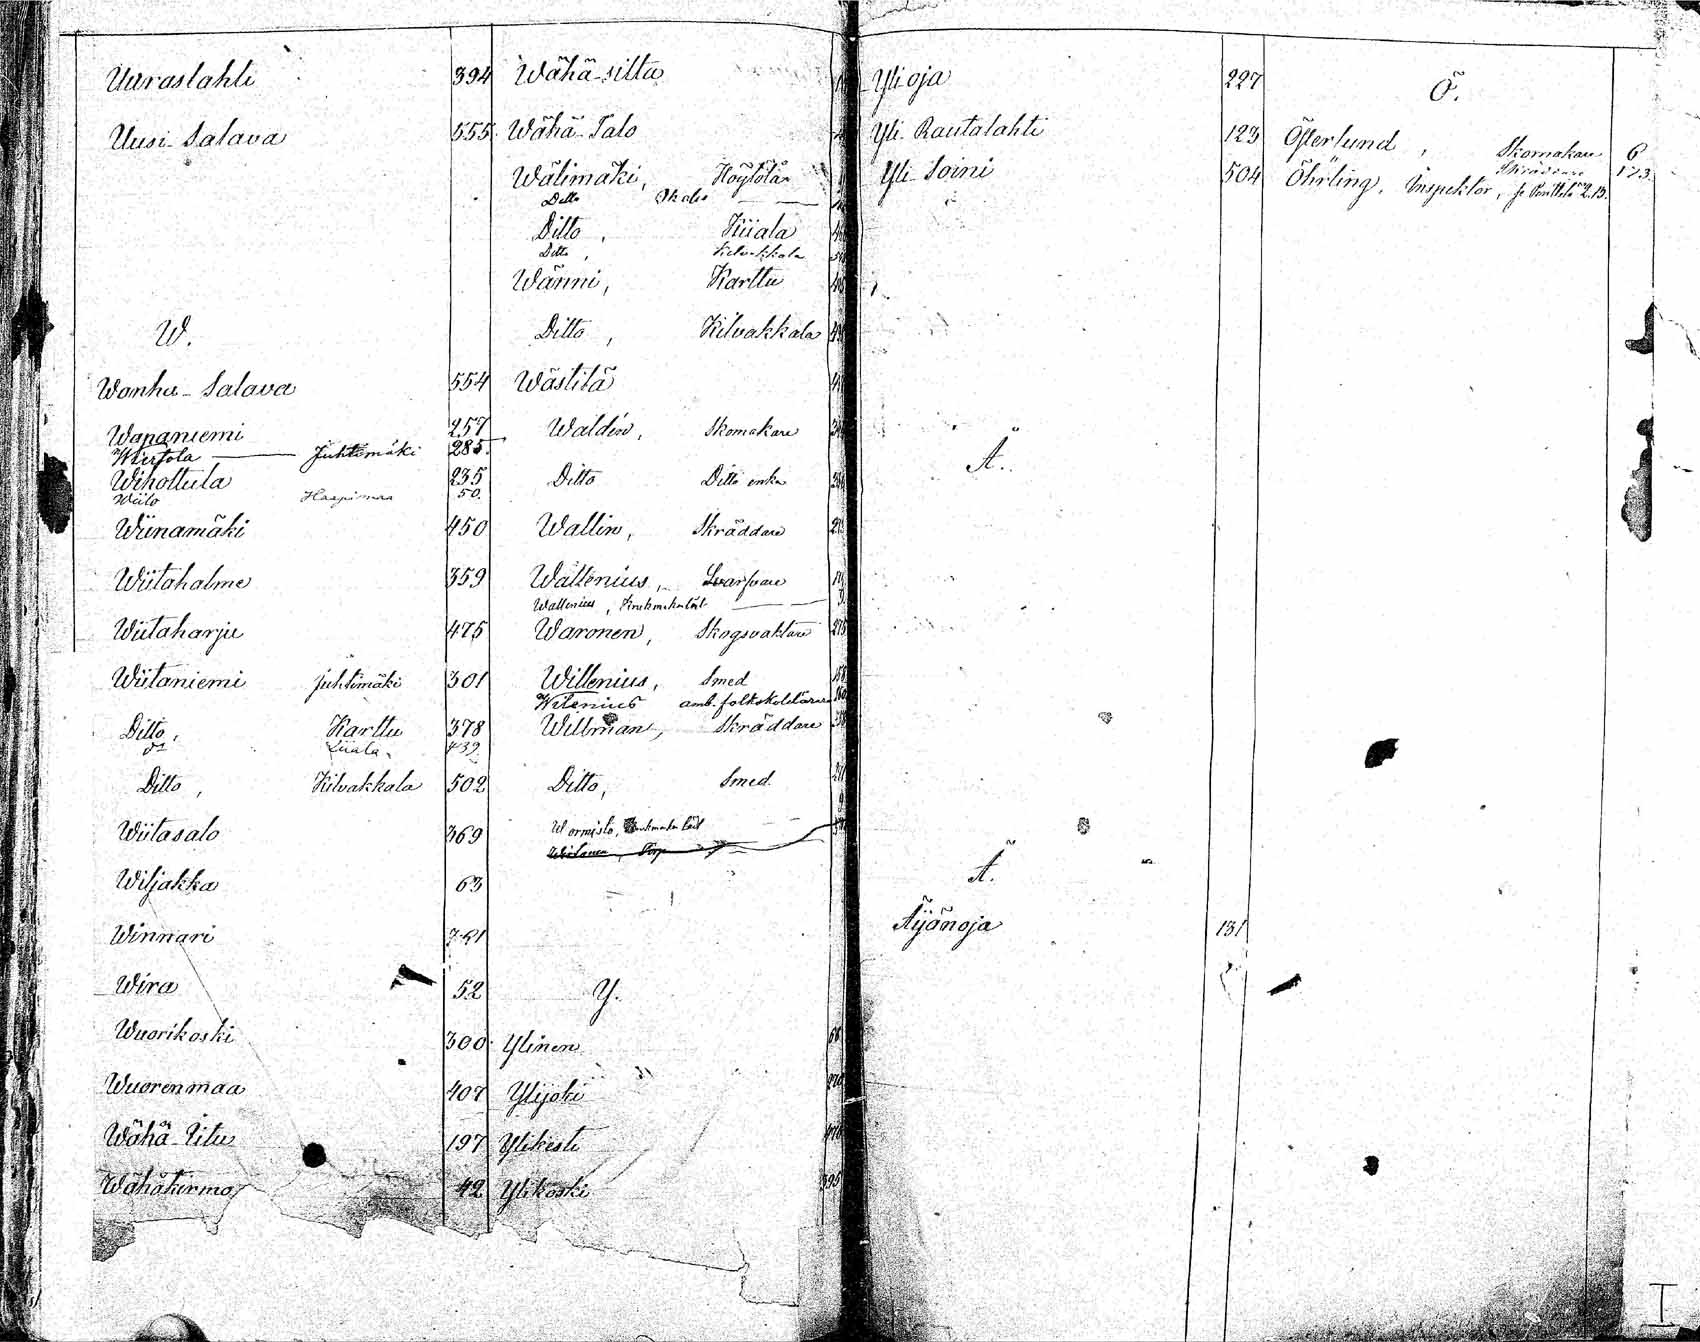 Uuraslahti 394
Uusi-Salava 555.
W.
Wanha-Salava 554
Wapaniemi 257
Wiertola Juhtimäki 285.
Wihottula 235
Wiilo Haapimaa 50.
Wiinamäki 450
Wiitahalme 359
Wiitaharju 475
Wiitaniemi Juhtimäki 301
Ditto, Karttu 378
Kiiala 439
Ditto, Kilvakkala 502
Wiitasalo 369
Wiljakka 63
Winnari
Wira 52
Wuorikoski 300.
Wuorenmaa 407
Wähä-Uitu 197
Wähäkirmo 42
Wähä-silta
Wähä-Talo
Wälimäki, Höytölä
Ditto
Ditto, Kiiala
Ditto, Kilvakkala
Wänni, Karttu
Ditto, Kilvakkala
Wästilä
Waldén, Skomakare
Ditto Ditto enka
Wallin, Skräddare
Wallenius, Svarfvare
Wallenius,
Waronen, Skogsvaktare
Willenius, Smed
Witenius amb. folkskolelärare
Willman, Skräddare
Ditto, Smed
Wormisto,
Y.
Ylinen 68
Ylijoki
Ylikesti
Ylikoski 395
Ylioja 227
Yli-Rautalahti 123
Yli-Soini 504
Å.
Ä.
Äijänoja 131
Ö.
Österlund, Skomakare 6
Skräddare 173.
Öhrling, Inspektor,